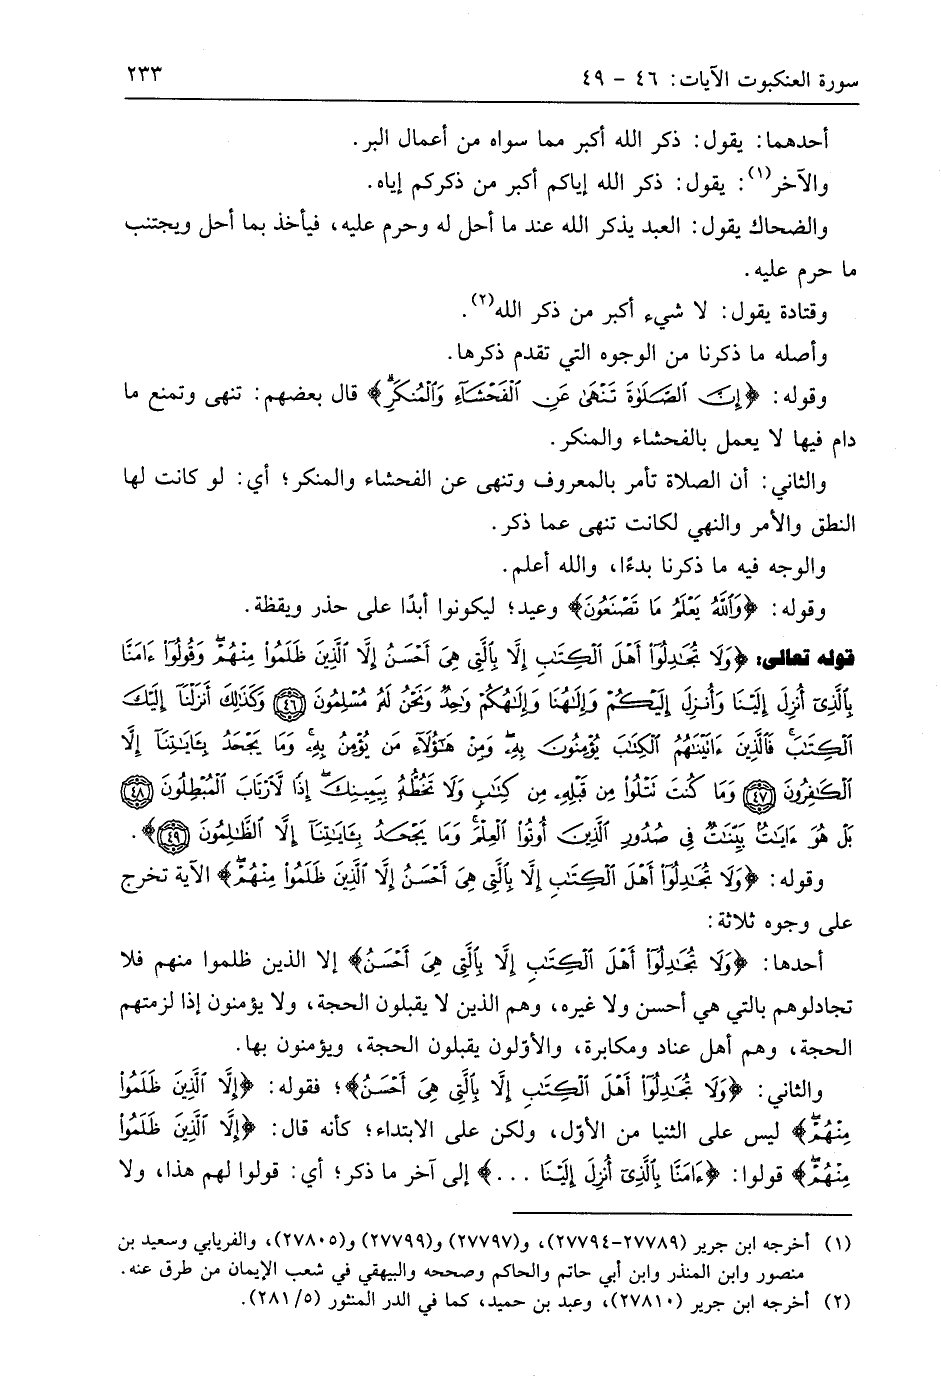 سورة العنكبوت الآيات: ٤٦ - ٤٩
٢٣٣
أحدهما: يقول: ذكر الله أكبر مما سواه من أعمال البر.
والآخر(١): يقول: ذكر الله إياكم أكبر من ذكركم إياه.
والضحاك يقول: العبد يذكر الله عند ما أحل له وحرم عليه، فيأخذ بما أحل ويجتنب
ما حرم عليه.
وقتادة يقول: لا شيء أكبر من ذكر الله(٢).
وأصله ما ذكرنا من الوجوه التي تقدم ذكرها.
وقوله: ﴿إِنَّ ٱلصَّلَوٰةَ تَنْهَىٰ عَنِ ٱلْفَحْشَآءِ وَٱلْمُنكَرِۗ﴾ قال بعضهم: تنهى وتمنع ما
دام فيها لا يعمل بالفحشاء والمنكر.
والثاني: أن الصلاة تأمر بالمعروف وتنهى عن الفحشاء والمنكر؛ أي: لو كانت لها
النطق والأمر والنهي لكانت تنهى عما ذكر.
والوجه فيه ما ذكرنا بدءًا، والله أعلم.
وقوله: ﴿وَٱللَّهُ يَعْلَمُ مَا تَصْنَعُونَ﴾ وعيد؛ ليكونوا أبدًا على حذر ويقظة.
قوله تعالى: ﴿وَلَا تُجَٰدِلُوٓا۟ أَهْلَ ٱلْكِتَٰبِ إِلَّا بِٱلَّتِى هِىَ أَحْسَنُ إِلَّا ٱلَّذِينَ ظَلَمُوا۟ مِنْهُمْۖ وَقُولُوٓا۟ ءَامَنَّا
بِٱلَّذِىٓ أُنزِلَ إِلَيْنَا وَأُنزِلَ إِلَيْكُمْ وَإِلَٰهُنَا وَإِلَٰهُكُمْ وَٰحِدٌ وَنَحْنُ لَهُۥ مُسْلِمُونَ ﴿٤٦﴾ وَكَذَٰلِكَ أَنزَلْنَآ إِلَيْكَ
ٱلْكِتَٰبَۚ فَٱلَّذِينَ ءَاتَيْنَٰهُمُ ٱلْكِتَٰبَ يُؤْمِنُونَ بِهِۦۖ وَمِنْ هَٰٓؤُلَآءِ مَن يُؤْمِنُ بِهِۦۚ وَمَا يَجْحَدُ بِـَٔايَٰتِنَآ إِلَّا
ٱلْكَٰفِرُونَ ﴿٤٧﴾ وَمَا كُنتَ تَتْلُوا۟ مِن قَبْلِهِۦ مِن كِتَٰبٍ وَلَا تَخُطُّهُۥ بِيَمِينِكَۖ إِذًا لَّٱرْتَابَ ٱلْمُبْطِلُونَ ﴿٤٨﴾
بَلْ هُوَ ءَايَٰتٌۢ بَيِّنَٰتٌ فِى صُدُورِ ٱلَّذِينَ أُوتُوا۟ ٱلْعِلْمَۚ وَمَا يَجْحَدُ بِـَٔايَٰتِنَآ إِلَّا ٱلظَّٰلِمُونَ ﴿٤٩﴾﴾.
وقوله: ﴿وَلَا تُجَٰدِلُوٓا۟ أَهْلَ ٱلْكِتَٰبِ إِلَّا بِٱلَّتِى هِىَ أَحْسَنُ إِلَّا ٱلَّذِينَ ظَلَمُوا۟ مِنْهُمْۖ﴾ الآية تخرج
على وجوه ثلاثة:
أحدها: ﴿وَلَا تُجَٰدِلُوٓا۟ أَهْلَ ٱلْكِتَٰبِ إِلَّا بِٱلَّتِى هِىَ أَحْسَنُ﴾ إلا الذين ظلموا منهم فلا
تجادلوهم بالتي هي أحسن ولا غيره، وهم الذين لا يقبلون الحجة، ولا يؤمنون إذا لزمتهم
الحجة، وهم أهل عناد ومكابرة، والأوّلون يقبلون الحجة، ويؤمنون بها.
والثاني: ﴿وَلَا تُجَٰدِلُوٓا۟ أَهْلَ ٱلْكِتَٰبِ إِلَّا بِٱلَّتِى هِىَ أَحْسَنُ﴾؛ فقوله: ﴿إِلَّا ٱلَّذِينَ ظَلَمُوا۟
مِنْهُمْۖ﴾ ليس على الثنيا من الأوّل، ولكن على الابتداء؛ كأنه قال: ﴿إِلَّا ٱلَّذِينَ ظَلَمُوا۟
مِنْهُمْۖ﴾ قولوا: ﴿ءَامَنَّا بِٱلَّذِىٓ أُنزِلَ إِلَيْنَا ...﴾ إلى آخر ما ذكر؛ أي: قولوا لهم هذا، ولا
(١) أخرجه ابن جرير (٢٧٧٨٩-٢٧٧٩٤)، و(٢٧٧٩٧) و(٢٧٧٩٩) و(٢٧٨٠٥)، والفريابي وسعيد بن
منصور وابن المنذر وابن أبي حاتم والحاكم وصححه والبيهقي في شعب الإيمان من طرق عنه.
(٢) أخرجه ابن جرير (٢٧٨١٠)، وعبد بن حميد، كما في الدر المنثور (٥/ ٢٨١).